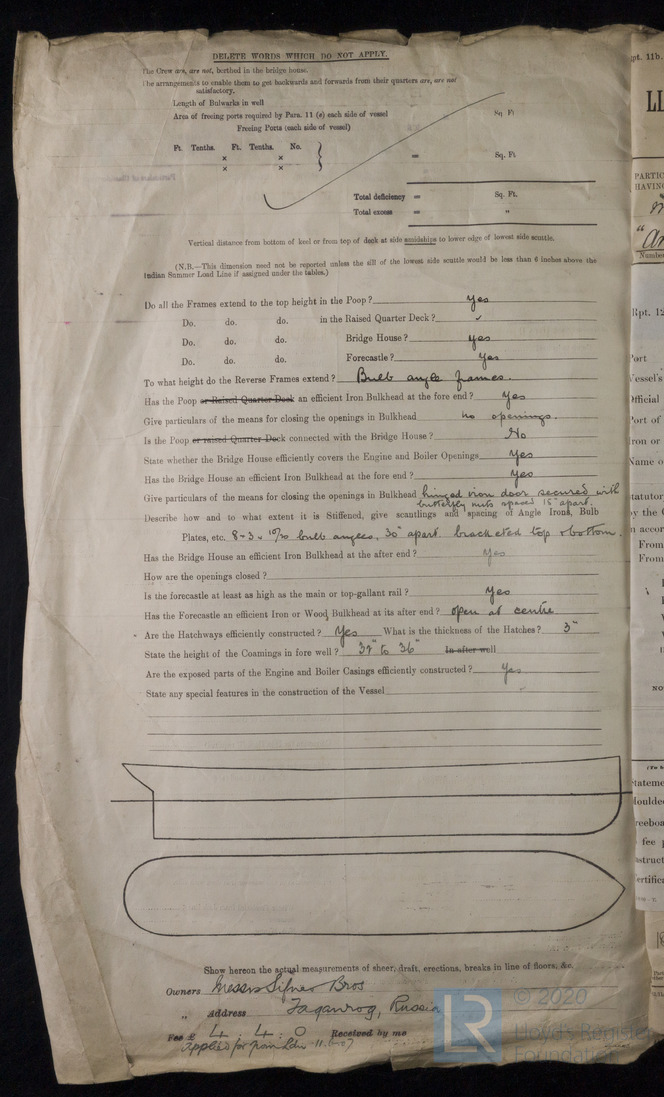 DELETE WORDS WHICH DO NOT APPLY.
The Crew are, are not, berthed in the bridge house.
The arrangements to enable them to get backwards and forwards from their quarters are, are not
satisfactory.
Length of Bulwarks in well
Area of freeing ports required by Para. 11 (e) each side of vessel Sq Ft
Freeing Ports (each side of vessel)
Ft. Tenths. Ft. Tenths. No.
× × = Sq. Ft
× ×
Total deficiency = Sq. Ft.
Total excess = "
Vertical distance from bottom of keel or from top of deck at side amidships to lower edge of lowest side scuttle.
(N.B.—This dimension need not be reported unless the sill of the lowest side scuttle would be less than 6 inches above the
Indian Summer Load Line if assigned under the tables.)
Do all the Frames extend to the top height in the Poop? Yes
Do. do. do. in the Raised Quarter Deck? ✓
Do. do. do. Bridge House? yes
Do. do. do. Forecastle? Yes
To what height do the Reverse Frames extend? Bulb angle frames.
Has the Poop or Raised Quarter Deck an efficient Iron Bulkhead at the fore end? Yes
Give particulars of the means for closing the openings in Bulkhead no openings.
Is the Poop or raised Quarter Deck connected with the Bridge House? No
State whether the Bridge House efficiently covers the Engine and Boiler Openings Yes
Has the Bridge House an efficient Iron Bulkhead at the fore end? Yes
Give particulars of the means for closing the openings in Bulkhead hinged iron door secured with
butterfly nuts spaced 15" apart.
Describe how and to what extent it is Stiffened, give scantlings and spacing of Angle Irons, Bulb
Plates, etc. 8-3 × 10/20 bulb angles, 30" apart. bracketed top & bottom.
Has the Bridge House an efficient Iron Bulkhead at the after end? Yes
How are the openings closed?
Is the forecastle at least as high as the main or top-gallant rail? Yes
Has the Forecastle an efficient Iron or Wood Bulkhead at its after end? open at centre
Are the Hatchways efficiently constructed? Yes What is the thickness of the Hatches? 3"
State the height of the Coamings in fore well? 39" to 36" In after well
Are the exposed parts of the Engine and Boiler Casings efficiently constructed? Yes
State any special features in the construction of the Vessel
Show hereon the actual measurements of sheer, draft, erections, breaks in line of floors, &c.
Owners Messrs Sifneo Bros
" Address Taganrog, Russia
Fee £ 4 . 4 . 0 Received by me
applied for from Ldn
© 2020
Lloyd's Register
Foundation
LR
pt. 11b.
LL
PARTIC
HAVING
"Ar
Number
Rpt. 12
Port
Vessel's
Official
Port of
Iron or
Name o
tatutor
by the C
n accor
From
From
NO
tateme
Moulde
reeboa
fee p
struct
ertifica